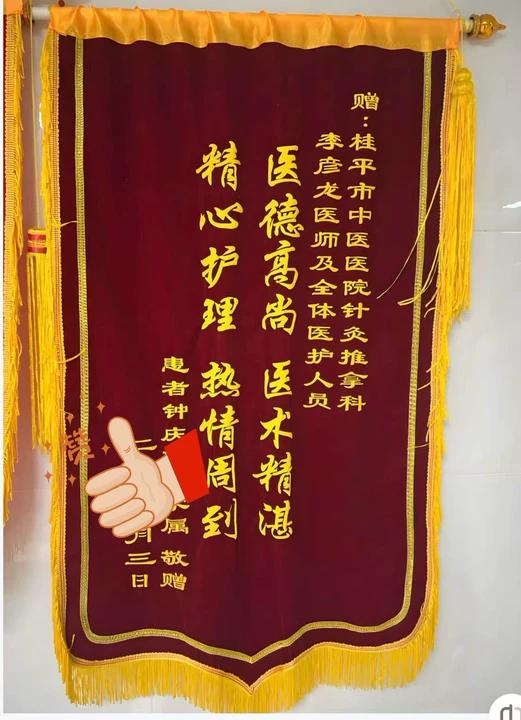 赠：桂平市中医医院针灸推拿科
李彦龙医师及全体医护人员
医德高尚 医术精湛
精心护理 热情周到
患者钟庆 属 敬赠
二 月三日
赞